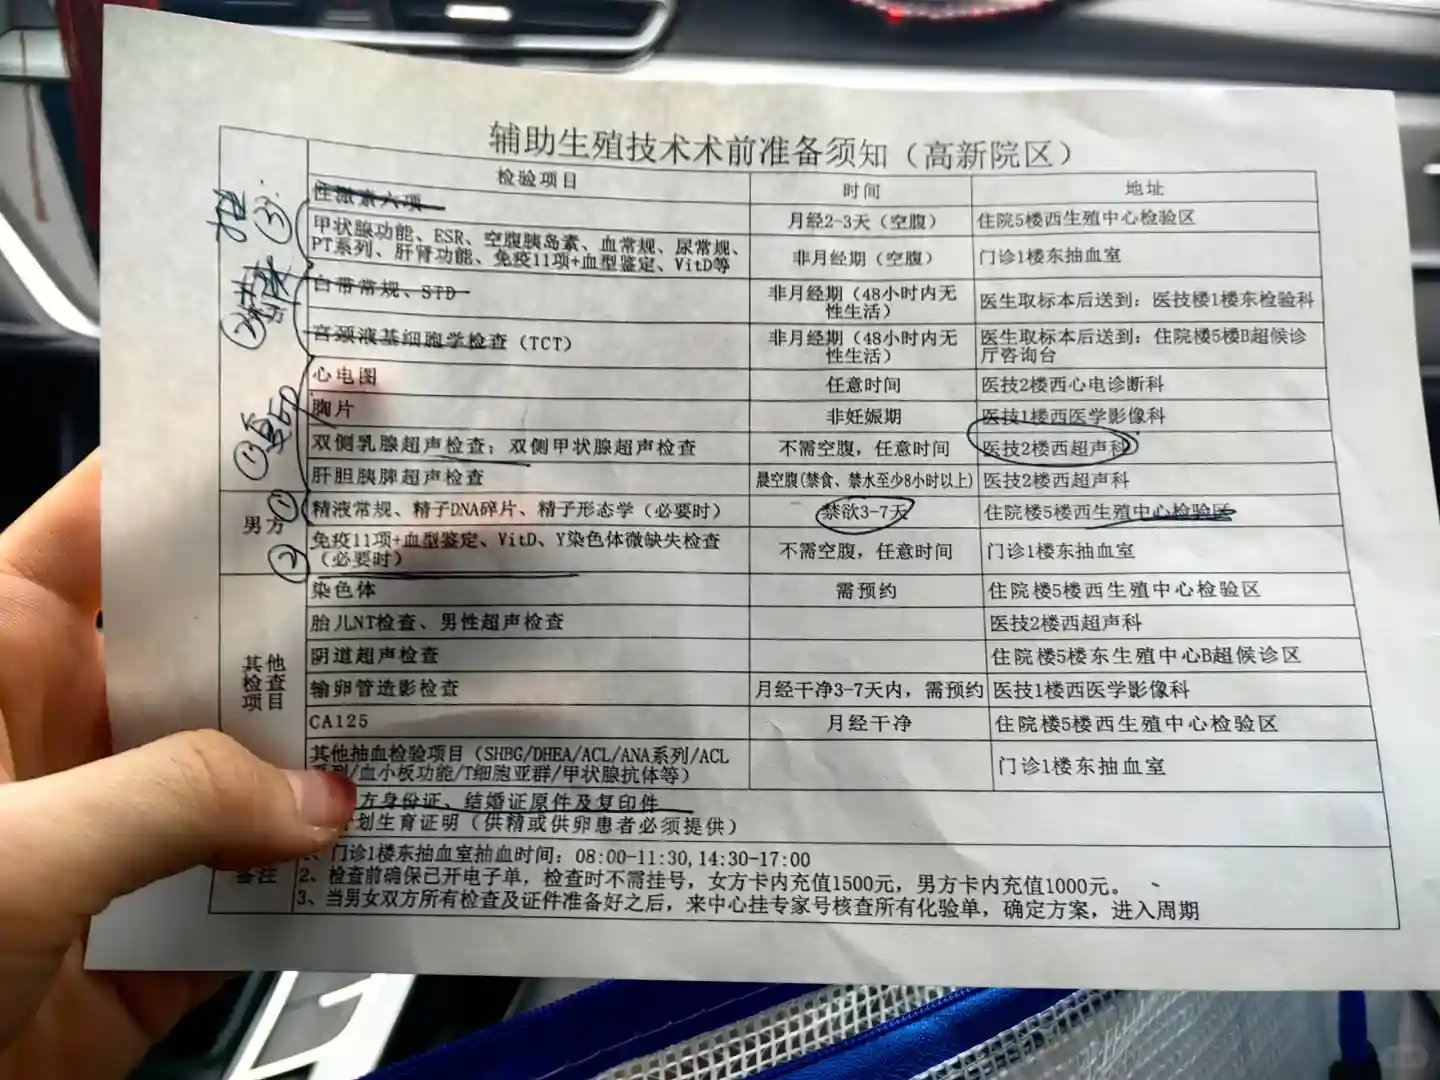 辅助生殖技术术前准备须知（高新院区）
检验项目 时间 地址
性激素六项 月经2-3天（空腹） 住院5楼西生殖中心检验区
甲状腺功能、ESR、空腹胰岛素、血常规、尿常规、
PT系列、肝肾功能、免疫11项+血型鉴定、VitD等
非月经期（空腹） 门诊1楼东抽血室
③
白带常规、STD
非月经期（48小时内无
性生活）
医生取标本后送到：医技楼1楼东检验科
②
宫颈液基细胞学检查（TCT）
非月经期（48小时内无
性生活）
医生取标本后送到：住院楼5楼B超候诊
厅咨询台
心电图 任意时间 医技2楼西心电诊断科
胸片 非妊娠期 医技1楼西医学影像科
①
双侧乳腺超声检查；双侧甲状腺超声检查 不需空腹，任意时间 医技2楼西超声科
肝胆胰脾超声检查 晨空腹(禁食、禁水至少8小时以上) 医技2楼西超声科
男方
①
精液常规、精子DNA碎片、精子形态学（必要时） 禁欲3-7天 住院楼5楼西生殖中心检验区
②
免疫11项+血型鉴定、VitD、Y染色体微缺失检查
（必要时）
不需空腹，任意时间 门诊1楼东抽血室
其他
检查
项目
染色体 需预约 住院楼5楼西生殖中心检验区
胎儿NT检查、男性超声检查 医技2楼西超声科
阴道超声检查 住院楼5楼东生殖中心B超候诊区
输卵管造影检查 月经干净3-7天内，需预约 医技1楼西医学影像科
CA125 月经干净 住院楼5楼西生殖中心检验区
其他抽血检验项目（SHBG/DHEA/ACL/ANA系列/ACL
系列/血小板功能/T细胞亚群/甲状腺抗体等）
门诊1楼东抽血室
方身份证、结婚证原件及复印件
划生育证明（供精或供卵患者必须提供）
备注
1、门诊1楼东抽血室抽血时间：08:00-11:30,14:30-17:00
2、检查前确保已开电子单，检查时不需挂号，女方卡内充值1500元，男方卡内充值1000元。
3、当男女双方所有检查及证件准备好之后，来中心挂专家号核查所有化验单，确定方案，进入周期